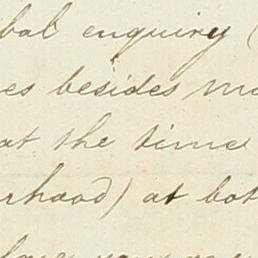 bal enquiry (
es besides mo
at the time
rhood) at bot